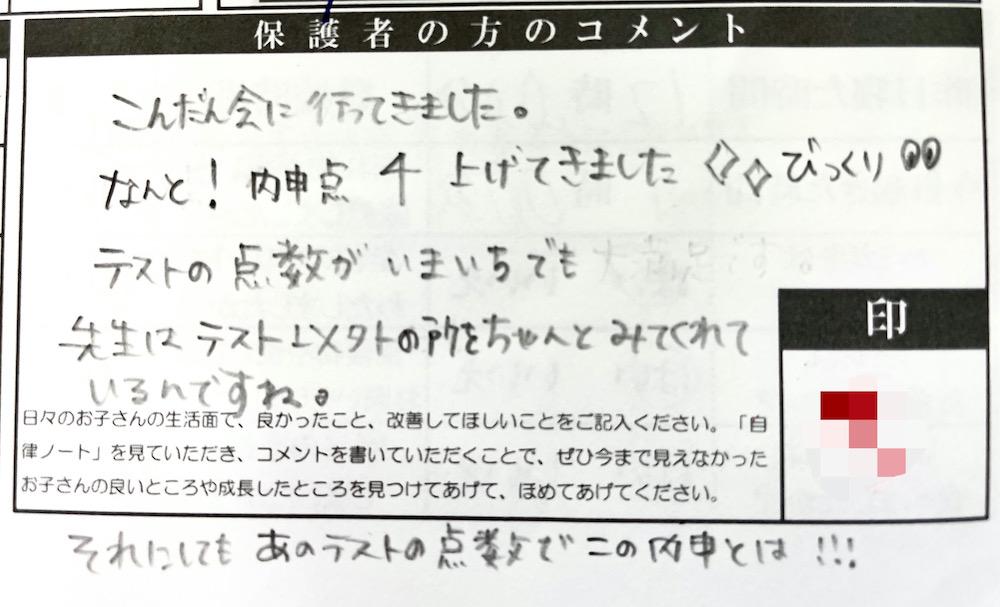 保護者の方のコメント
こんだん会に行ってきました。
なんと！内申点 4 上げてきました びっくり
テストの点数がいまいちでも
先生はテスト以外の所をちゃんとみてくれて
いるんですね。
印
日々のお子さんの生活面で、良かったこと、改善してほしいことをご記入ください。「自
律ノート」を見ていただき、コメントを書いていただくことで、ぜひ今まで見えなかった
お子さんの良いところや成長したところを見つけてあげて、ほめてあげてください。
それにしてもあのテストの点数でこの内申とは!!!